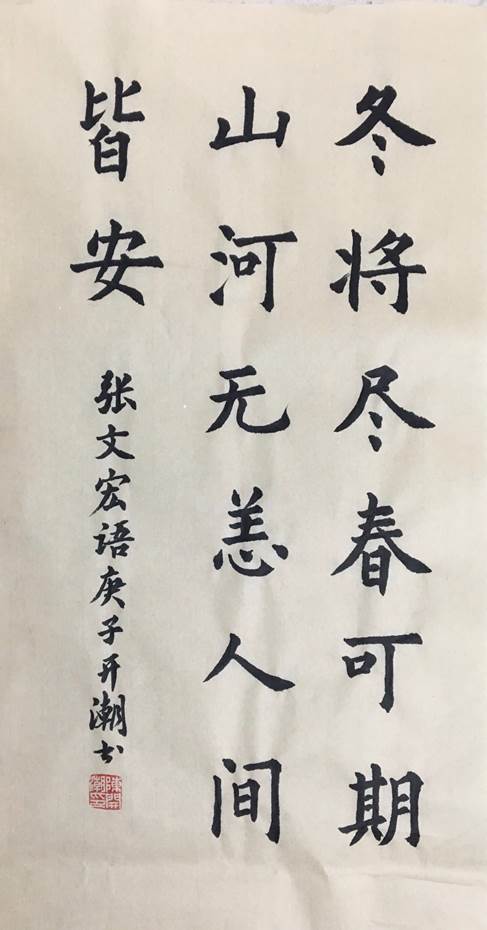 冬将尽春可期
山河无恙人间
皆安
张文宏语庚子开潮书
陈开潮印